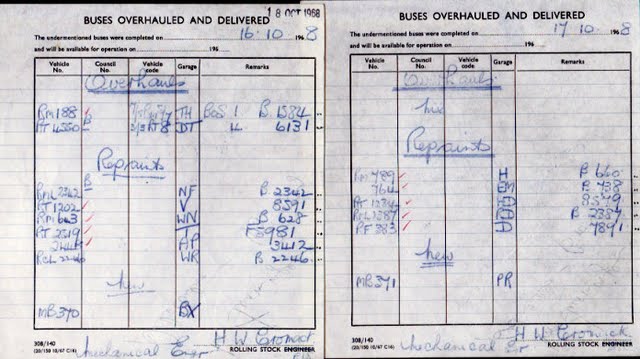 BUSES OVERHAULED AND DELIVERED
18 OCT 1968
The undermentioned buses were completed on 16.10 1968
and will be available for operation on 196
Vehicle No. Council No. Vehicle code Garage Remarks
Overhauls
RM188 TH BoS 1 B 1584
RT 4550 DT 4 6131
Repaints
RML2342 NF B 2342
RT 1202 V 8591
RM 663 WN B 628
RT 2519 T F3981
2444 AP 3412
RCL 2246 WR B 2246
New
MB370 BX
H W Cromwick
308/140
(20/150 10/67 C16)
Mechanical Engr
ROLLING STOCK ENGINEER
BUSES OVERHAULED AND DELIVERED
The undermentioned buses were completed on 17.10 1968
and will be available for operation on 196
Vehicle No. Council No. Vehicle code Garage Remarks
Overhauls
Repaints
RM 789 H B 660
764 B 738
RT 1234 A 8579
RML2387 A B 2387
RF 383 7891
New
MB371 PR
H W Cromwick
308/140
(20/150 10/67 C16)
Mechanical Er
ROLLING STOCK ENGINEER